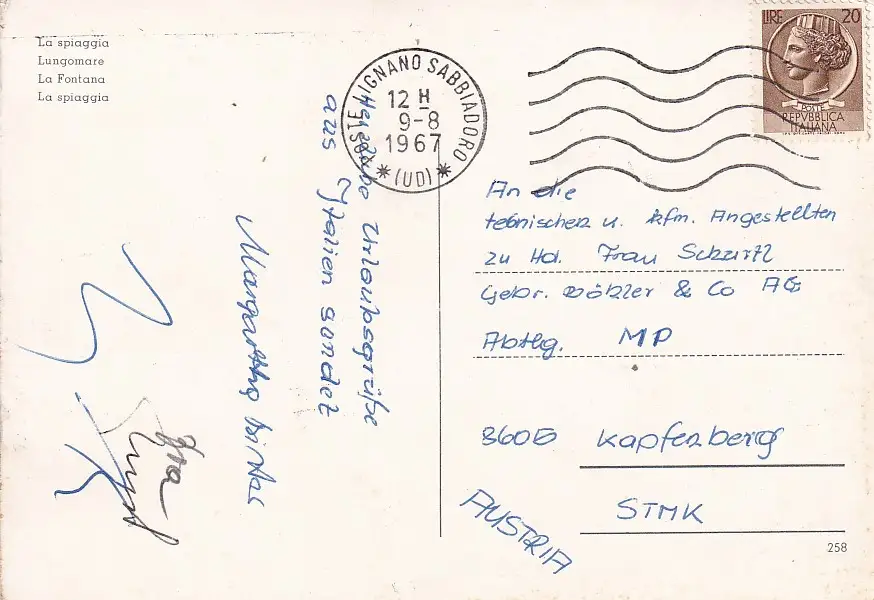 La spiaggia
Lungomare
La Fontana
La spiaggia
POSTE LIGNANO SABBIADORO
12 H
9-8
1967
(UD)
LIRE 20
POSTE
REPVBBLICA
ITALIANA
Herzliche Urlaubsgrüße
aus Italien sendet
An die
technischen u. kfm. Angestellten
zu Hd. Frau
Gebr. Böhler & Co AG
Abtlg. MP
8605 Kapfenberg
STMK
AUSTRIA
258